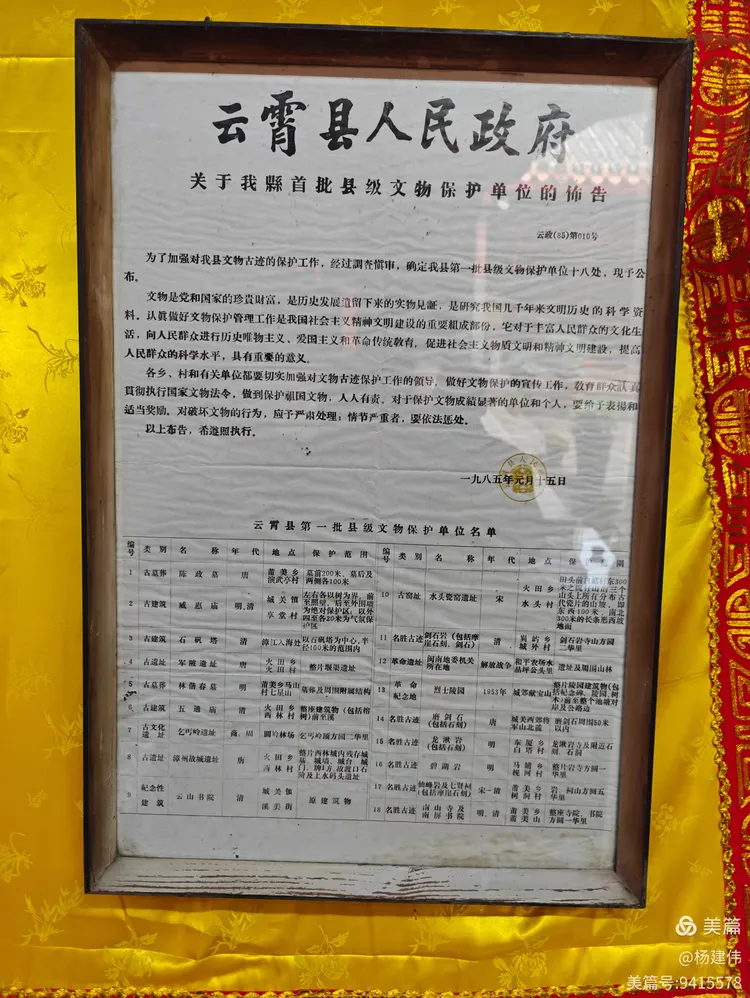 云霄县人民政府
关于我縣首批县级文物保护单位的佈告
云政(85)第010号
为了加强对我县文物古迹的保护工作，经过調查慎审，确定我县第一批县级文物保护单位十八处，現予公
布。
文物是党和国家的珍貴財富，是历史发展遗留下来的实物見証，是研究我国几千年来文明历史的科学资
料。认眞做好文物保护管理工作是我国社会主义精神文明建设的重要組成部份，它对于丰富人民群众的文化生
活，向人民群众进行历史唯物主义、爱国主义和革命传统敎育，促进社会主义物质文明和精神文明建設，提高
人民群众的科学水平，具有重要的意义。
各乡、村和有关单位都要切实加强对文物古迹保护工作的領导，做好文物保护的宣传工作，敎育群众认真
貫彻执行国家文物法令，做到保护祖国文物，人人有責。对于保护文物成績显著的单位和个人，要給予表揚和
适当奖励。对破坏文物的行为，应予严肃处理；情节严重者，要依法惩处。
以上布告，希遵照执行。
一九八五年元月十五日
云霄县第一批县级文物保护单位名单
编号 类别 名称 年代 地点 保护范围
1 古墓葬 陈政墓 唐 莆美乡演武亭村 墓前200米、墓后及两侧各100米
2 古建筑 威惠庙 明、清 城关镇享堂村 左右各以树为界，前至照壁，后至外围墙为绝对保护区；以外四至各20米为气氛保护区
3 古建筑 石矾塔 清 漳江入海处 以石矾塔为中心，半径100米的范围内
4 古遗址 军陂遗址 唐 火田乡火田村 整片堰渠遗址
5 古墓葬 林偕春墓 明 莆美乡马山村七星山 墓塚及周围附属结构
6 古建筑 五通庙 清 火田乡西林村 整座建筑物（包括榕树）前至溪
7 古文化遗址 乞丐岭遗址 商、周 圆岭林场 乞丐岭顶方圆二华里
8 古遗址 漳州故城遗址 唐 火田乡西林村 整片西林城内残存城基、城墙、城台、城门、牌坊、故渡口石阶及上水码头遗址
9 紀念性建筑 云山书院 清 城关镇溪美街 原建筑物
编号 类别 名称 年代 地点 保护范围
10 古窑址 水头瓷窑遗址 宋 火田乡水头村
11 名胜古迹 剑石岩（包括摩崖石刻、剑石） 清 峛屿乡城外村 剑石岩寺山方圆二华里
12 革命遗址 闽南地委机关所在地 解放战争 和平农场水晶坪公头里 遗址及周围山林
13 革命紀念地 烈士陵园 1953年 城郊献宝山 整片陵园建筑物（包括紀念碑、陵园、树林）前至整个池塘对岸及公路边
14 名胜古迹 磨剑石（包括石刻） 唐 城关西郊将军山北麓 磨剑石周围50米以内
15 名胜古迹 龙湫岩（包括石刻） 明 东厦乡白塔村 龙湫岩寺及附近石刻
16 名胜古迹 碧湖岩 明 马铺乡枧河村 整片岩寺方圆一华里
17 名胜古迹 仙峰岩及七贤祠（包括摩崖石刻） 宋—清 莆美乡树洞村 岩、祠山方圆五华里
18 名胜古迹 南山寺及南屏书院 明、清 莆美乡莆美山 整座寺院、书院方圆一华里
美篇
@杨建伟
美篇号:9415578